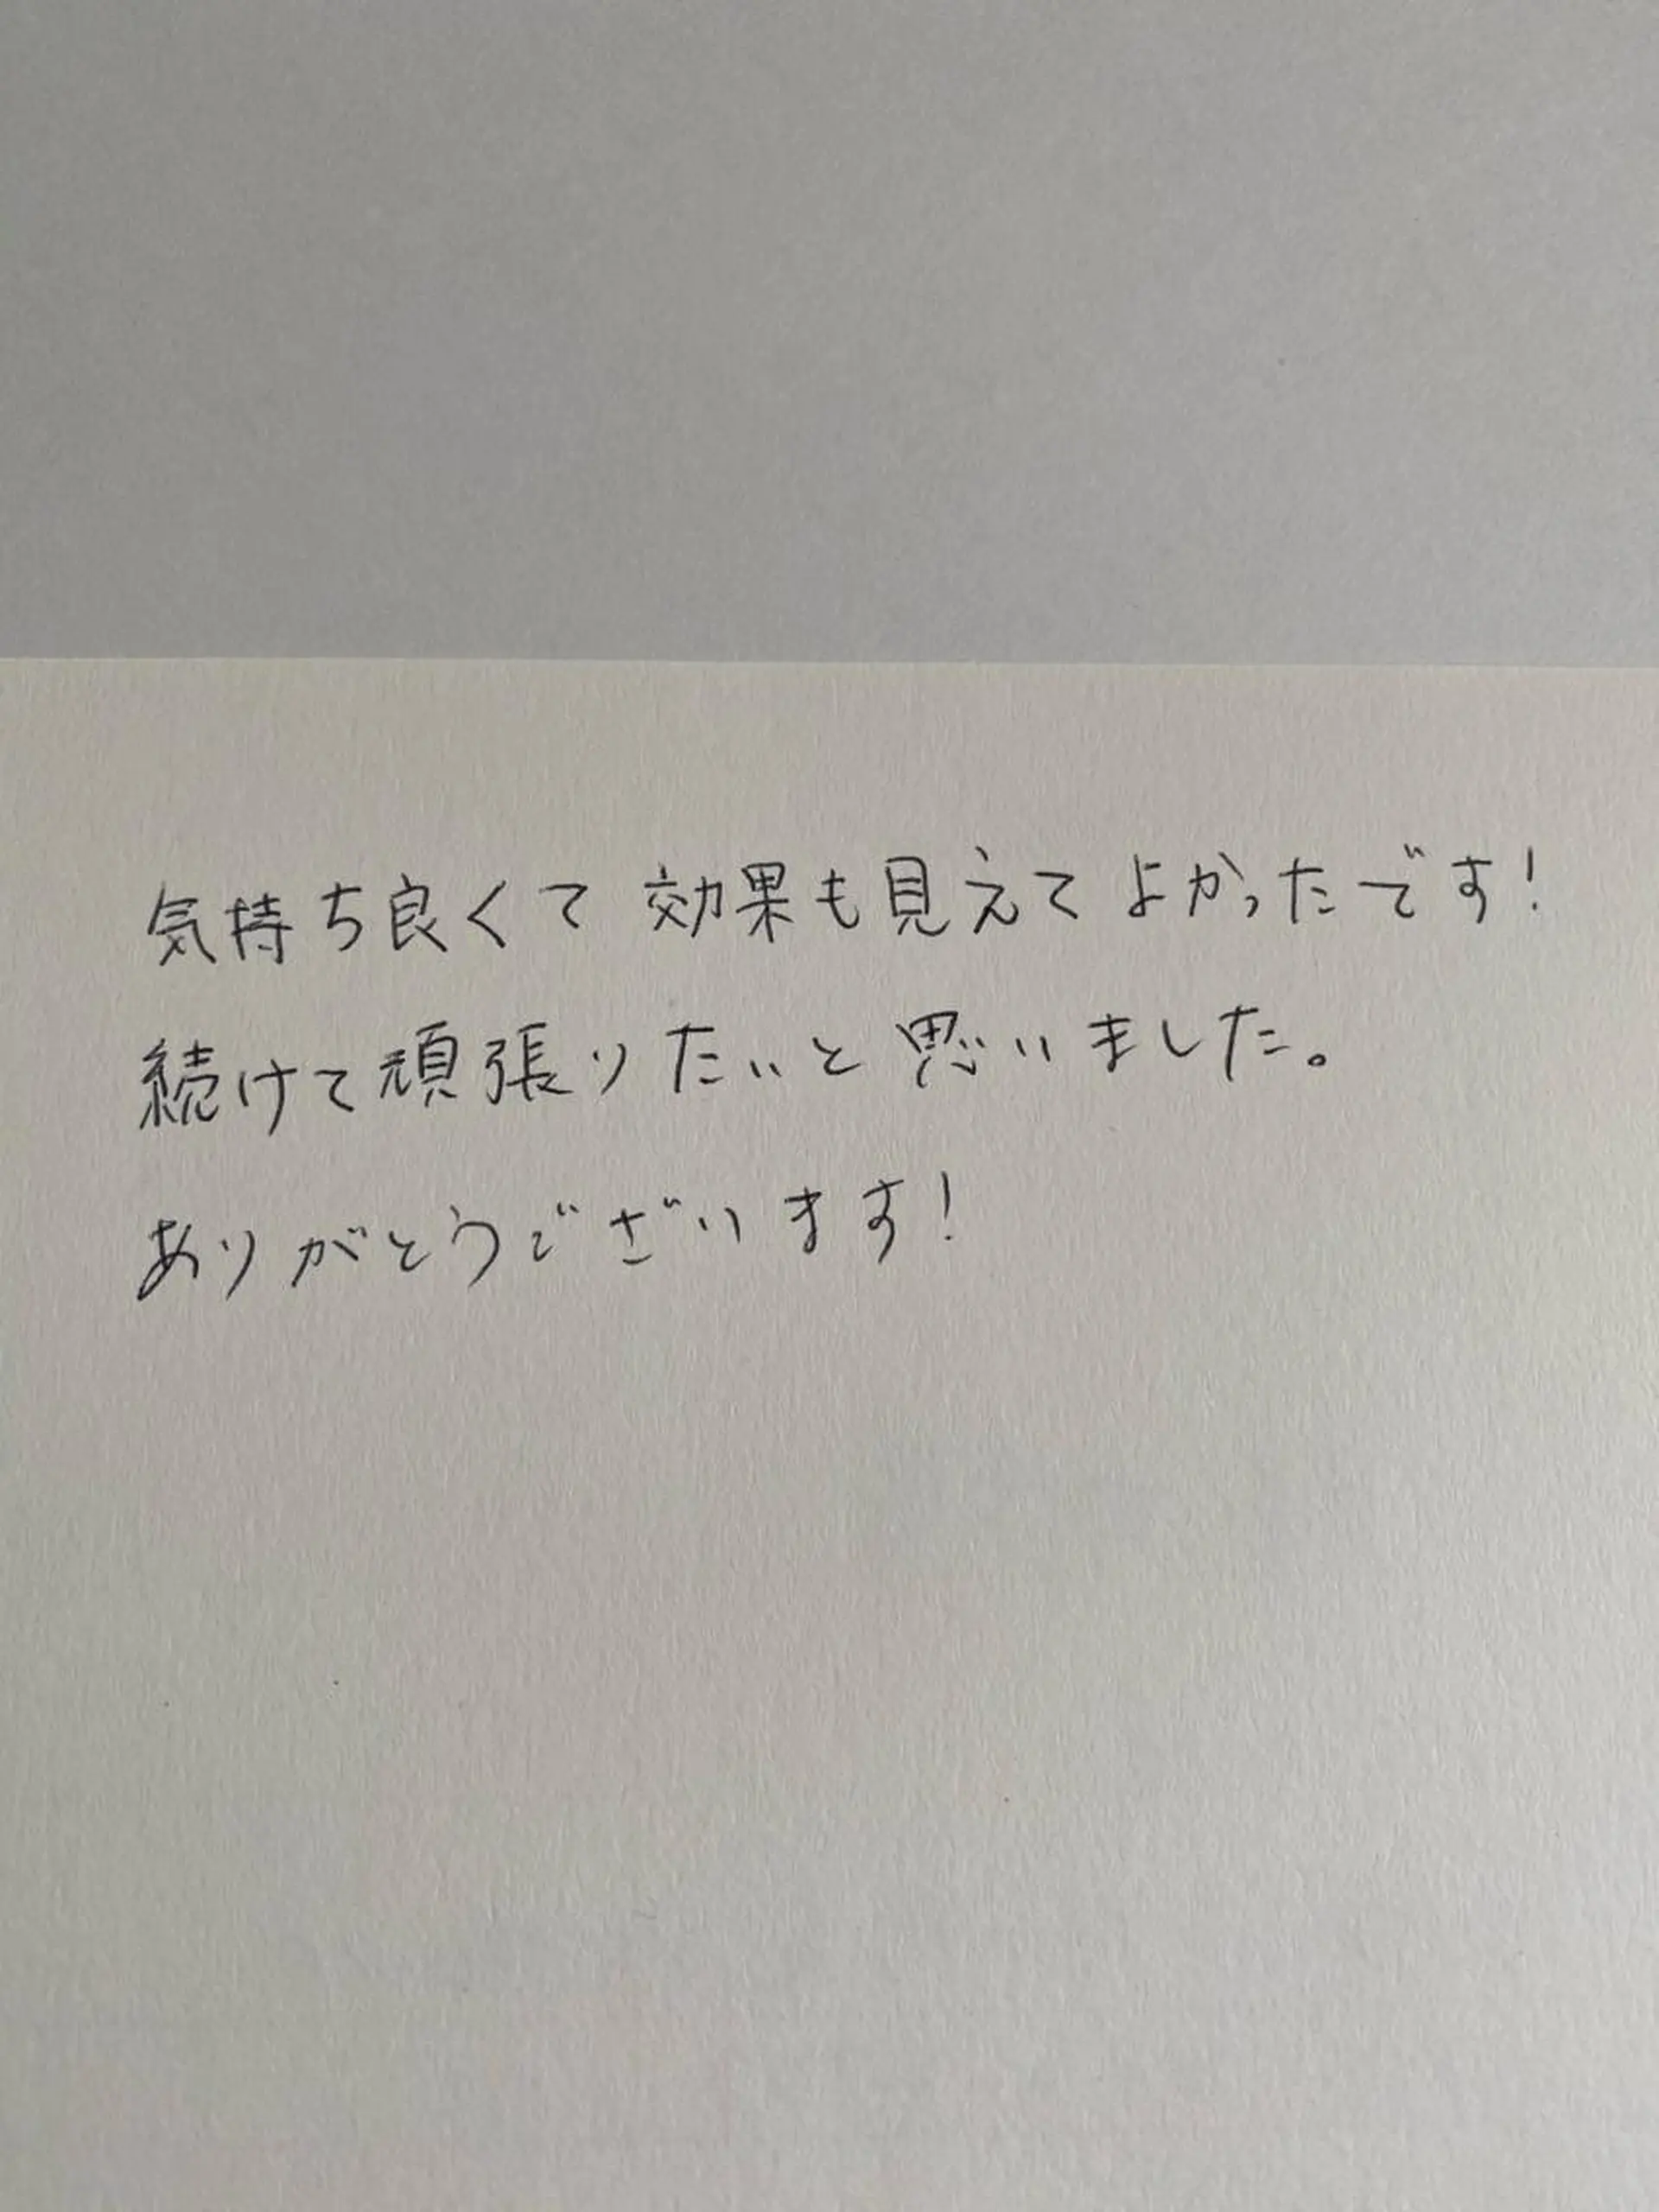 気持ち良くて効果も見えてよかったです!
続けて頑張りたいと思いました。
ありがとうございます!